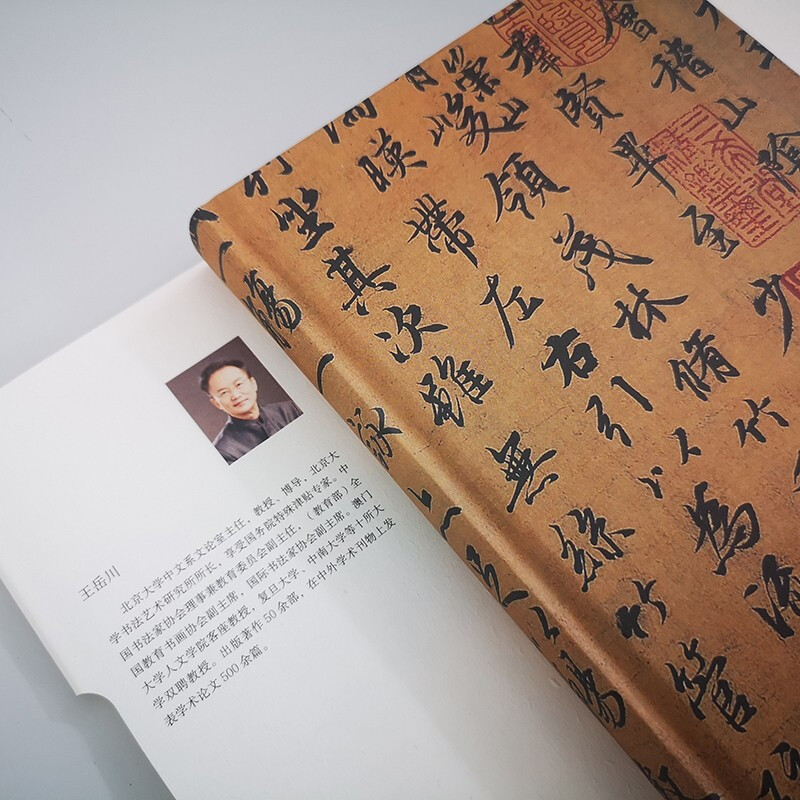 會稽山陰
群賢畢至少
崇山峻領茂林脩竹
湍暎帶左右引以為清
列坐其次雖無絲竹管
一觴一詠亦足以暢
王岳川
北京大学中文系文论室主任，教授，博导，北京大
学书法艺术研究所所长，享受国务院特殊津贴专家。中
国书法家协会理事兼教育委员会副主任，（教育部）全
国教育书画协会副主席，国际书法家协会副主席。澳门
大学人文学院客座教授，复旦大学、中南大学等十所大
学双聘教授。出版著作50余部，在中外学术刊物上发
表学术论文500余篇。